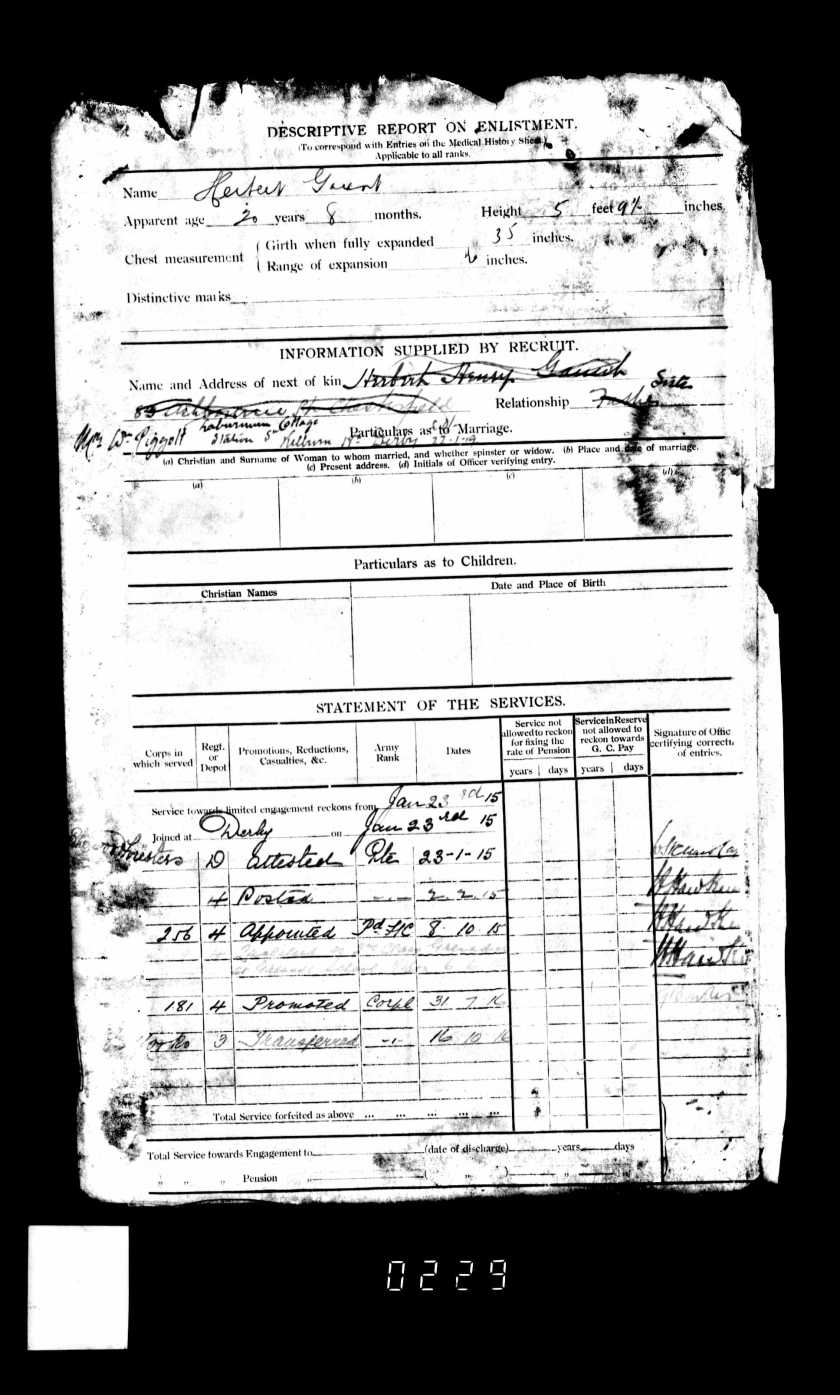 DESCRIPTIVE REPORT ON ENLISTMENT.
(To correspond with Entries on the Medical History Sheet.)
Applicable to all ranks.
Name Herbert
Apparent age 20 years 8 months. Height 5 feet 9½ inches
Chest measurement { Girth when fully expanded 35 inches.
{ Range of expansion 2 inches.
Distinctive marks
INFORMATION SUPPLIED BY RECRUIT.
Name and Address of next of kin Herbert Henry
Sister
83 Chesterfield Relationship Father
Mrs W. Piggott Laburnum Cottage
Station St Kilburn Nr Derby 22-1-19
Particulars as to Marriage.
(a) Christian and Surname of Woman to whom married, and whether spinster or widow. (b) Place and date of marriage.
(c) Present address. (d) Initials of Officer verifying entry.
(a) (b) (c) (d)
Particulars as to Children.
Christian Names Date and Place of Birth
STATEMENT OF THE SERVICES.
Corps in which served Regt. or Depot Promotions, Reductions, Casualties, &c. Army Rank Dates Service not allowed to reckon for fixing the rate of Pension Service in Reserve not allowed to reckon towards G. C. Pay Signature of Offic certifying correct of entries.
years days years days
Service towards limited engagement reckons from Jan 23rd 15
Joined at Derby on Jan 23rd 15
Foresters D Attested Pte 23-1-15
4 Posted -"- 2 2 15
256 4 Appointed Pd L/C 8 10 15
181 4 Promoted Corpl 31 7 16
3 Transferred -"- 16 10 16
Total Service forfeited as above ... ... ... ... ...
Total Service towards Engagement to (date of discharge) years days
" " " Pension " ( " ) " "
0229